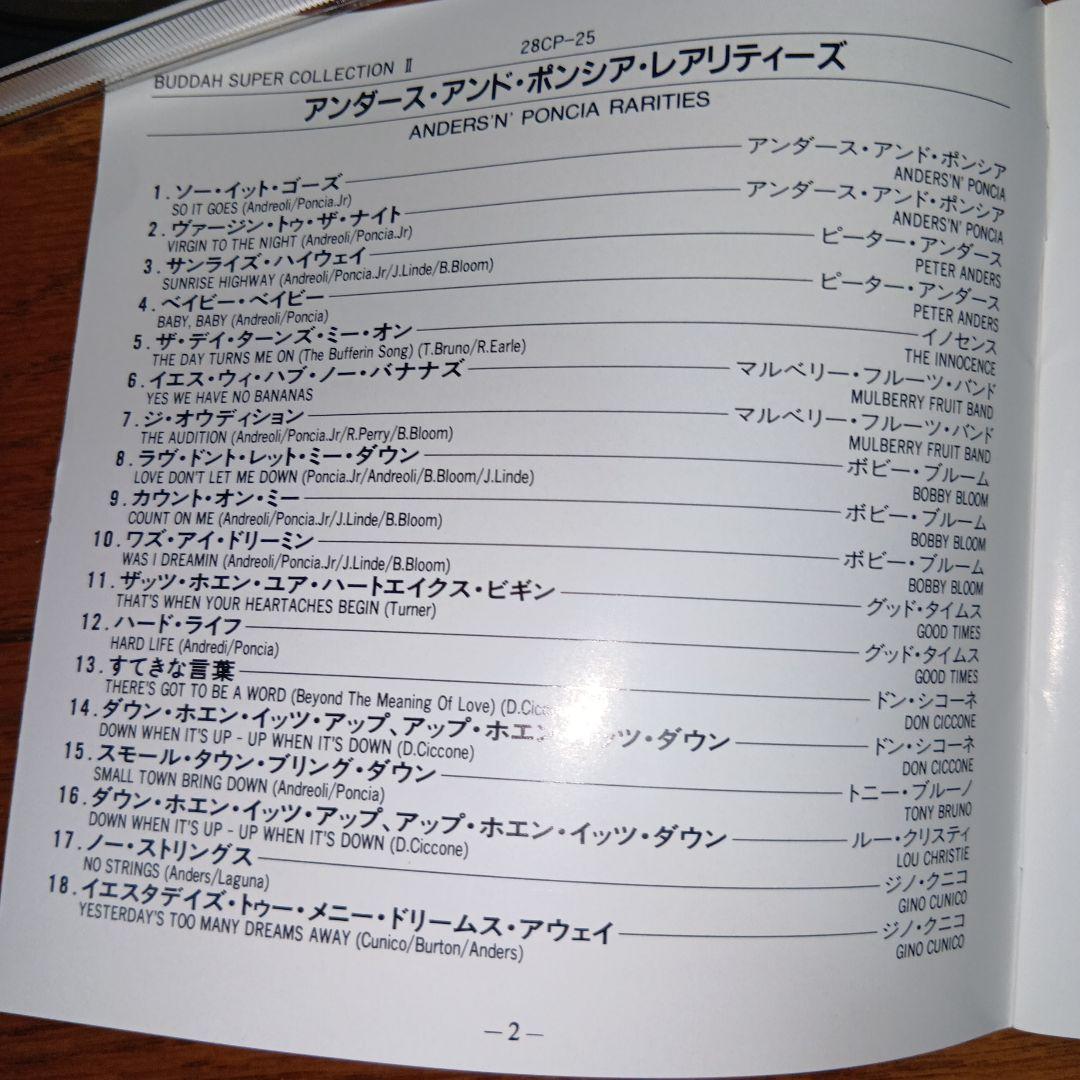 28CP-25
BUDDAH SUPER COLLECTION Ⅱ
アンダース・アンド・ポンシア・レアリティーズ
ANDERS'N' PONCIA RARITIES
1.ソー・イット・ゴーズ アンダース・アンド・ポンシア
SO IT GOES (Andreoli/Poncia.Jr) ANDERS'N' PONCIA
2.ヴァージン・トゥ・ザ・ナイト アンダース・アンド・ポンシア
VIRGIN TO THE NIGHT (Andreoli/Poncia.Jr) ANDERS'N' PONCIA
3.サンライズ・ハイウェイ ピーター・アンダース
SUNRISE HIGHWAY (Andreoli/Poncia.Jr/J.Linde/B.Bloom) PETER ANDERS
4.ベイビー・ベイビー ピーター・アンダース
BABY, BABY (Andreoli/Poncia) PETER ANDERS
5.ザ・デイ・ターンズ・ミー・オン イノセンス
THE DAY TURNS ME ON (The Bufferin Song) (T.Bruno/R.Earle) THE INNOCENCE
6.イエス・ウィ・ハブ・ノー・バナナズ マルベリー・フルーツ・バンド
YES WE HAVE NO BANANAS MULBERRY FRUIT BAND
7.ジ・オウディション マルベリー・フルーツ・バンド
THE AUDITION (Andreoli/Poncia.Jr/R.Perry/B.Bloom) MULBERRY FRUIT BAND
8.ラヴ・ドント・レット・ミー・ダウン ボビー・ブルーム
LOVE DON'T LET ME DOWN (Poncia.Jr/Andreoli/B.Bloom/J.Linde) BOBBY BLOOM
9.カウント・オン・ミー ボビー・ブルーム
COUNT ON ME (Andreoli/Poncia.Jr/J.Linde/B.Bloom) BOBBY BLOOM
10.ワズ・アイ・ドリーミン ボビー・ブルーム
WAS I DREAMIN (Andreoli/Poncia.Jr/J.Linde/B.Bloom) BOBBY BLOOM
11.ザッツ・ホエン・ユア・ハートエイクス・ビギン グッド・タイムス
THAT'S WHEN YOUR HEARTACHES BEGIN (Turner) GOOD TIMES
12.ハード・ライフ グッド・タイムス
HARD LIFE (Andredi/Poncia) GOOD TIMES
13.すてきな言葉 ドン・シコーネ
THERE'S GOT TO BE A WORD (Beyond The Meaning Of Love) DON CICCONE
14.ダウン・ホエン・イッツ・アップ、アップ・ホエン・イッツ・ダウン ドン・シコーネ
DOWN WHEN IT'S UP - UP WHEN IT'S DOWN (D.Ciccone) DON CICCONE
15.スモール・タウン・ブリング・ダウン トニー・ブルーノ
SMALL TOWN BRING DOWN (Andreoli/Poncia) TONY BRUNO
16.ダウン・ホエン・イッツ・アップ、アップ・ホエン・イッツ・ダウン ルー・クリスティ
DOWN WHEN IT'S UP - UP WHEN IT'S DOWN (D.Ciccone) LOU CHRISTIE
17.ノー・ストリングス ジノ・クニコ
NO STRINGS (Anders/Laguna) GINO CUNICO
18.イエスタデイズ・トゥー・メニー・ドリームス・アウェイ ジノ・クニコ
YESTERDAY'S TOO MANY DREAMS AWAY (Cunico/Burton/Anders) GINO CUNICO
—2—